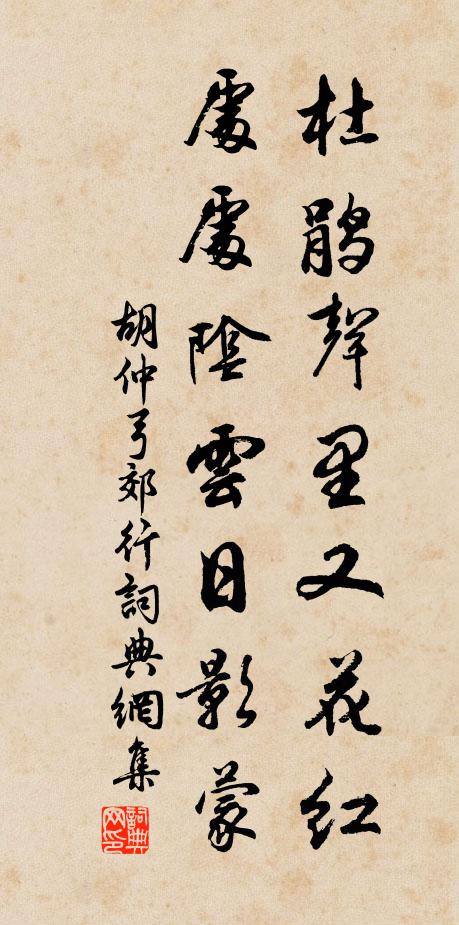 杜鵑聲里又花紅
處處陰雲日影蒙
胡仲弓郊行詞典網集
詞典网印